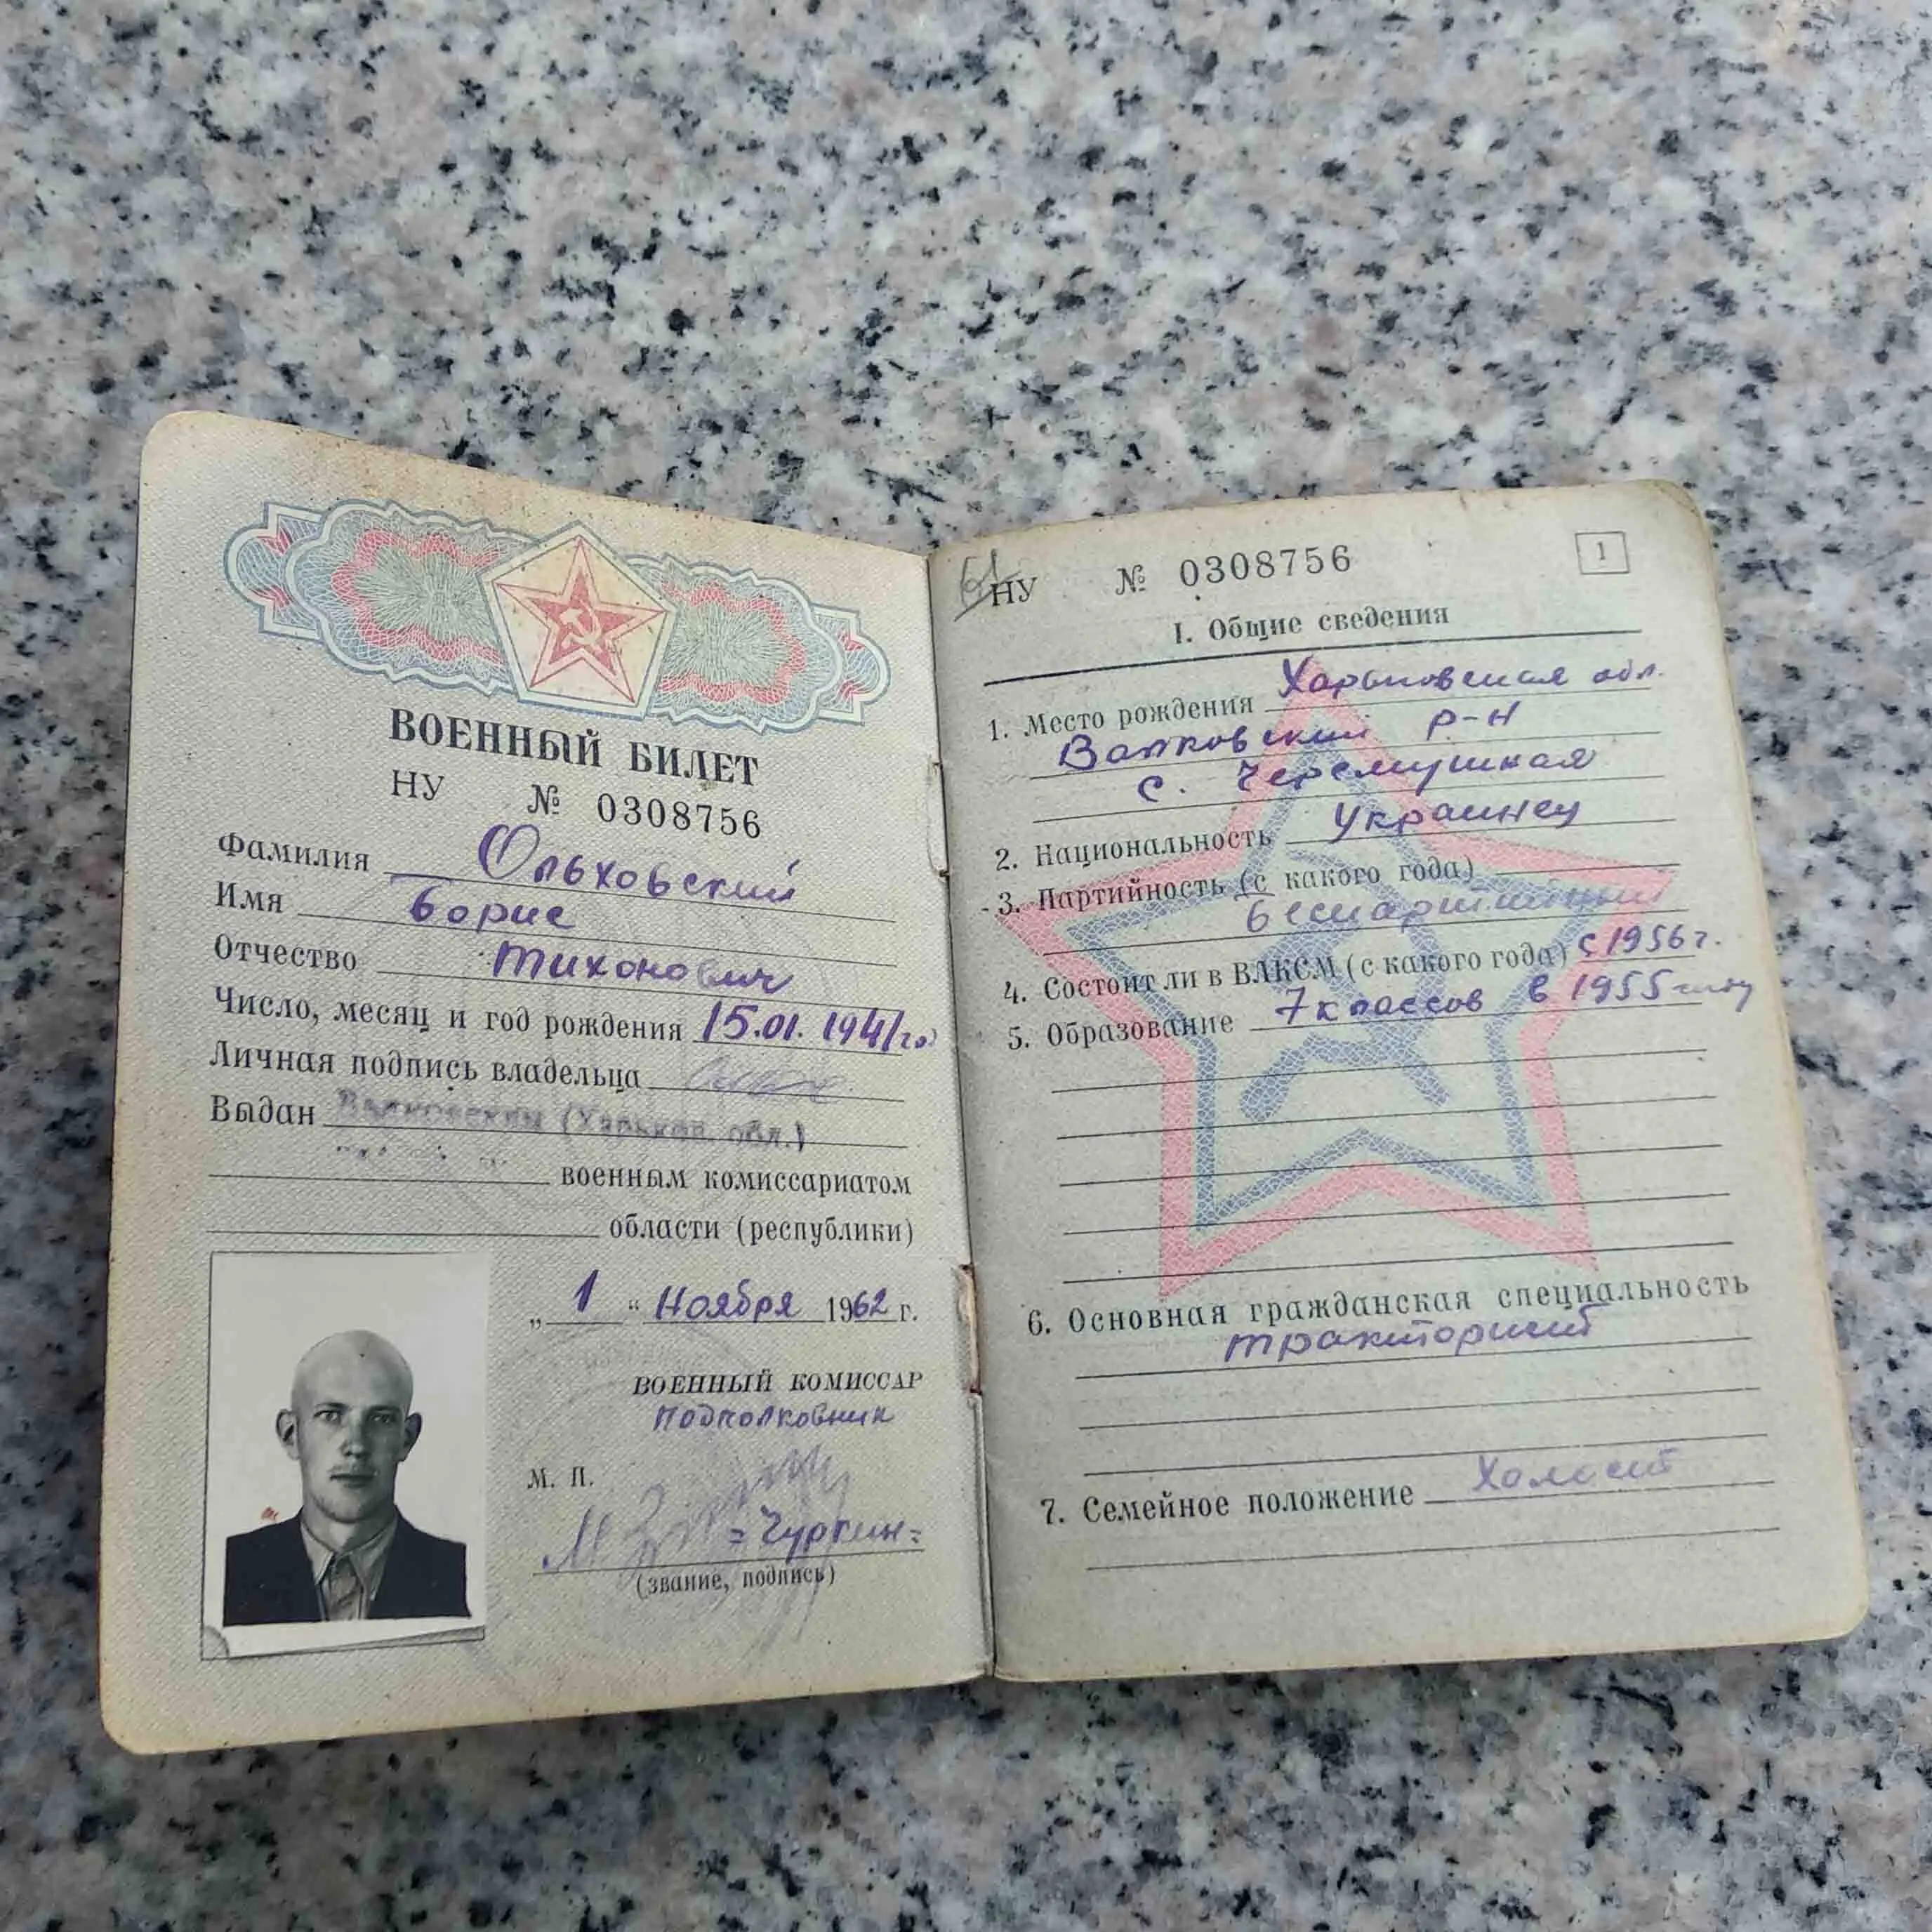 ВОЕННЫЙ БИЛЕТ
НУ № 0308756
Фамилия Ольховский
Имя Борис
Отчество Тихонович
Число, месяц и год рождения 15.01.1941 го
Личная подпись владельца
Выдан Валковским (Харьков. обл.)
военным комиссариатом
области (республики)
„ 1 “ Ноября 1962 г.
ВОЕННЫЙ КОМИССАР
подполковник
М. П.
= Чуркин =
(звание, подпись)
НУ № 0308756
1
I. Общие сведения
1. Место рождения Харьковская обл.
Валковский р-н
с. Черемушная
2. Национальность Украинец
3. Партийность (с какого года)
беспартийный
4. Состоит ли в ВЛКСМ (с какого года) с 1956 г.
5. Образование 7 классов в 1955 году
6. Основная гражданская специальность
тракторист
7. Семейное положение Холост